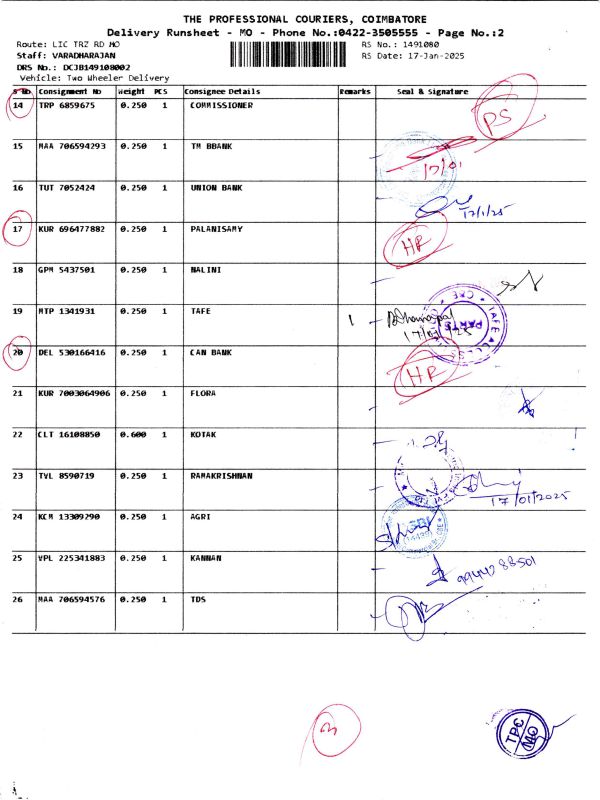 THE PROFESSIONAL COURIERS, COIMBATORE
Delivery Runsheet - MO - Phone No.:0422-3505555 - Page No.:2
Route: LIC TRZ RD MO RS No.: 1491080
Staff: VARADHARAJAN RS Date: 17-Jan-2025
DRS No.: DCJB149108002
Vehicle: Two Wheeler Delivery
S No Consignment No Weight PCS Consignee Details Remarks Seal & Signature
14 TRP 6859675 0.250 1 COMMISSIONER PS
15 MAA 706594293 0.250 1 TM BBANK 17/01
16 TUT 7052424 0.250 1 UNION BANK 17/1/25
17 KUR 696477882 0.250 1 PALANISAMY HR
18 GPM 5437501 0.250 1 NALINI
19 MTP 1341931 0.250 1 TAFE 17/01/25
20 DEL 530166416 0.250 1 CAN BANK HR
21 KUR 7003064906 0.250 1 FLORA
22 CLT 16108850 0.600 1 KOTAK
23 TVL 8590719 0.250 1 RAMAKRISHNAN 17/01/2025
24 KCM 13309290 0.250 1 AGRI
25 VPL 225341883 0.250 1 KANNAN 99440 88501
26 MAA 706594576 0.250 1 TDS
3
TPC
MO